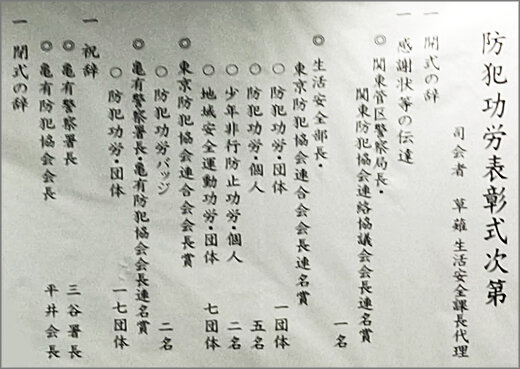 防犯功労表彰式次第
司会者 草薙生活安全課長代理
一 開式の辞
一 感謝状等の伝達
◎ 関東管区警察局長・
関東防犯協会連絡協議会会長連名賞
一名
◎ 生活安全部長・
東京防犯協会連合会会長連名賞
○ 防犯功労・団体 一団体
○ 防犯功労・個人 五名
○ 少年非行防止功労・個人 二名
○ 地域安全運動功労・団体 七団体
◎ 東京防犯協会連合会会長賞
○ 防犯功労バッジ 二名
◎ 亀有警察署長・亀有防犯協会会長連名賞
○ 防犯功労・団体 一七団体
一 祝辞
◎ 亀有警察署長 三谷署長
◎ 亀有防犯協会会長 平井会長
一 閉式の辞